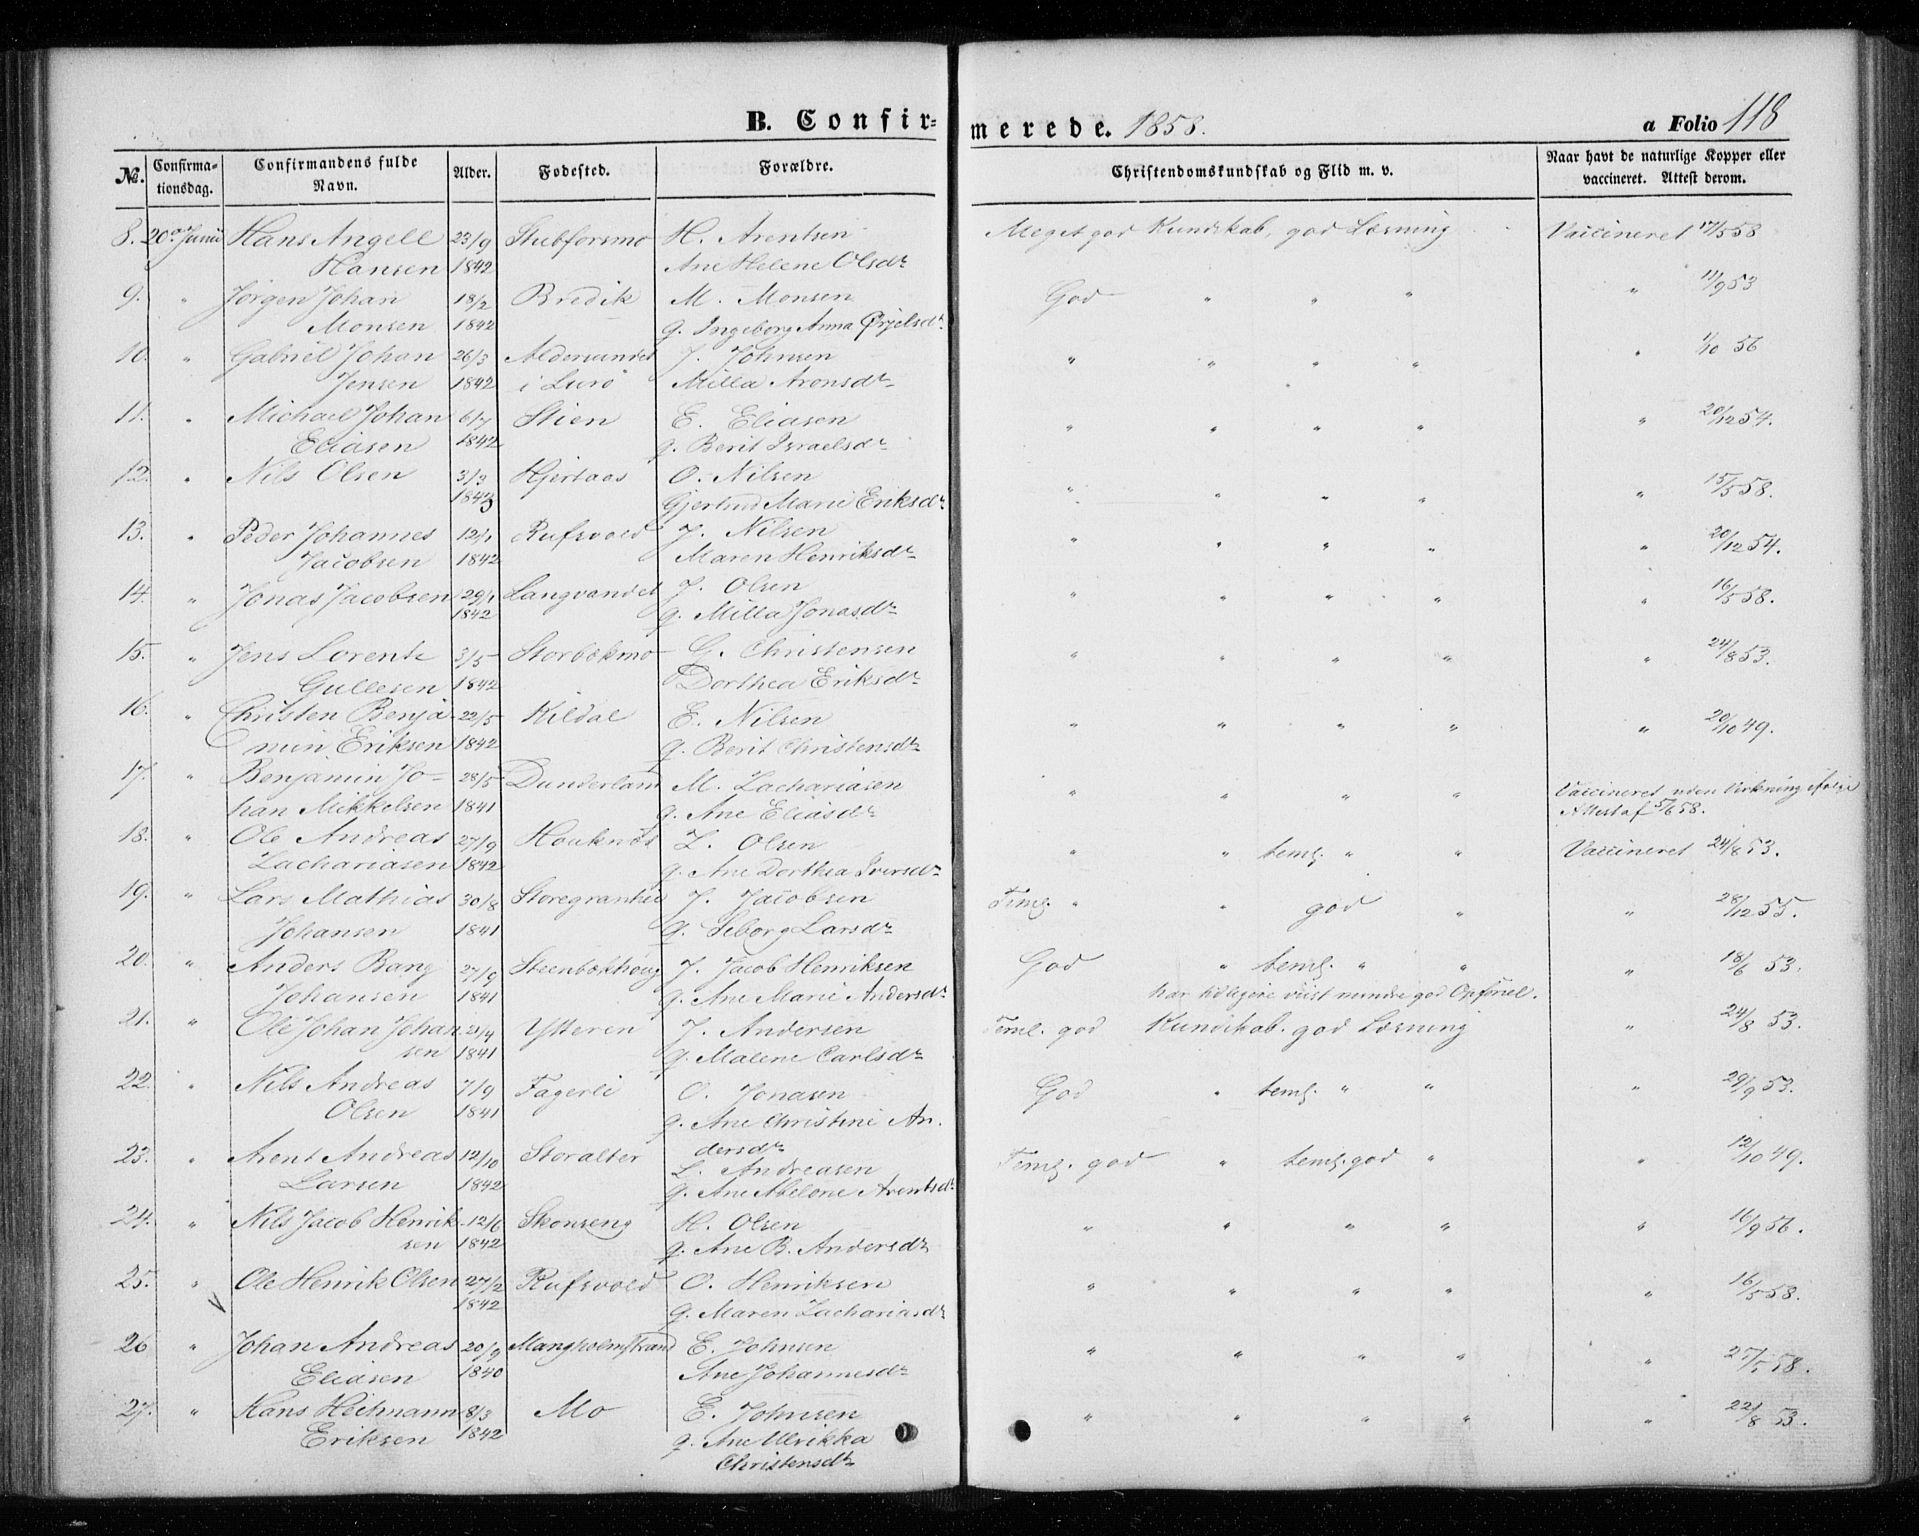 B. Confir=
merede. 1858.
a Folio 118
№.
Confirma-
tionsdag.
Confirmandens fulde
Navn.
Alder.
Fødested.
Forældre.
Christendomskundskab og Flid m. v.
Naar havt de naturlige Kopper eller
vaccineret. Attest derom.
8. 20de Junii Hans Angell 23/9 Stubforsmo H. Arentsen Meget god Kundskab, god Læsning Vaccineret 17/5 58
Hansen 1842 Ane Helene Olsdr
9. " Jørgen Johan 18/2 Bredik M. Monsen God " " " " 11/9 53
Monsen 1842 g. Ingeborg Anna Ørjelsdr
10. " Gabriel Johan 26/3 Aldersundet J. Johnsen " " " " " 1/10 56
Jensen 1842 i Lurø Milla Aronsdr
11. " Michael Johan 6/7 Stien E. Eliasen " " " " " 20/12 54.
Eliasen 1842 g. Berit Israelsdr
12. " Nils Olsen 3/3 Hjertaas O. Nilsen " " " " " 15/5 58.
1843 Gjertrud Marie Eriksdr
13. " Peder Johannes 12/1 Rufsvold J. Nilsen " " " " " 20/12 54.
Jacobsen 1842 Maren Henriksdr
14. " Jonas Jacobsen 29/1 Langvandet J. Olsen " " " " " 16/5 58.
1842 g. Milla Jonasdr
15. " Jens Lorents 3/5 Storbækmo G. Christensen " " " " " 24/8 53.
Gullesen 1842 Dorthea Eriksdr
16. " Christen Benja- 22/5 Kildal E. Nilsen " " " " " 20/10 49.
min Eriksen 1842 g. Berit Christensdr
17. " Benjamin Jo- 28/5 Dunderland M. Zachariasen " " " " Vaccineret uden Virkning ifølge
han Mikkelsen 1841 g. Ane Eliasdr Attest af 5/6 58.
18. " Ole Andreas 27/9 Houknæs Z. Olsen " " teml. " " Vaccineret 24/8 53.
Zachariasen 1842 g. Ane Dorthea Iversdr
19. " Lars Mathias 30/8 Storegranhei J. Jacobsen Teml. " " god " " 28/12 55.
Johansen 1841 g. Seborg Larsdr
20. " Anders Bang 27/9 Steenbækhaug J. Jacob Henriksen God " teml. " " " 18/6 53.
Johansen 1841 g. Ane Marie Andersdr har tidligere viist mindre god Opførsel.
21. " Ole Johan Johan 21/4 Ytteren J. Andersen Teml. god Kundskab. god Læsning " 24/8 53.
sen 1841 g. Malene Carlsdr
22. " Nils Andreas 7/9 Fagerli O. Jonasen God " teml. " " " 29/9 53.
Olsen 1841 g. Ane Christine An-
dersdr
23. " Arent Andreas 12/10 Storalter L. Andreasen Teml. god " teml. god " " 12/10 49.
Larsen 1842 g. Ane Abelone Arentsdr
24. " Nils Jacob Henrik- 12/6 Skonseng H. Olsen " " " " " 16/9 56.
sen 1842 g. Ane B. Andersdr
25. " Ole Henrik Olsen 27/2 Rufsvold O. Henriksen " " " " " 16/5 58.
1842 g. Maren Zachariasdr
26 " Johan Andreas 20/9 Mangholmstrand E. Johnsen " " " " " 25/5 58.
Eliasen 1840 Ane Johannesdr
27. " Hans Heitmann 8/3 Mo E. Johnsen " " " " " 22/8 53.
Eriksen 1842 g. Ane Ulrikka
Christensdr